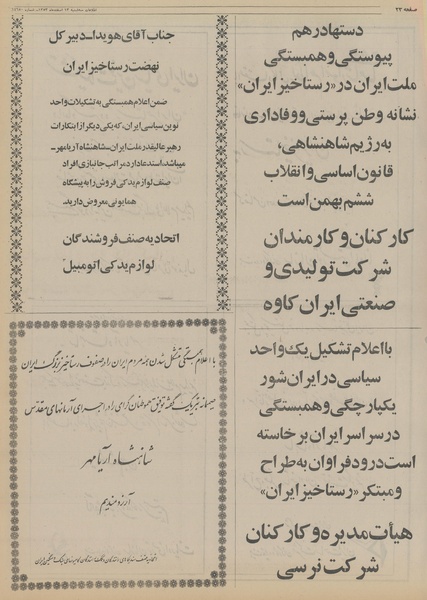 صفحه ۲۳
دستها در هم
پیوستگی و همبستگی
ملت ایران در «رستاخیز ایران»
نشانه وطن پرستی و وفاداری
به رژیم شاهنشاهی،
قانون اساسی و انقلاب
ششم بهمن است
کارکنان و کارمندان
شرکت تولیدی و
صنعتی ایران کاوه
با اعلام تشکیل یک واحد
سیاسی در ایران شور
یکپارچگی و همبستگی
در سراسر ایران برخاسته
است درود فراوان به طراح
و مبتکر «رستاخیز ایران»
هیأت مدیره و کارکنان
شرکت نرسی
جناب آقای هویدا ـ دبیر کل
نهضت رستاخیز ایران
ضمن اعلام همبستگی به تشکیلات واحد
نوین سیاسی ایران، که یکی دیگر از ابتکارات
رهبر عالیقدر ملت ایران ـ شاهنشاه آریامهر ـ
میباشد استدعا دارد مراتب جانبازی افراد
صنف لوازم یدکی فروش را به پیشگاه
همایونی معروض دارید.
اتحادیه صنف فروشندگان
لوازم یدکی اتومبیل
با اعلام همبستگی متشکل شدن همه مردم ایران را در صفوف رستاخیز بزرگ ایران
صمیمانه تبریک گفته توفیق هموطنان گرامی را در اجرای آرمانهای مقدس
شاهنشاه آریامهر
آرزومندیم